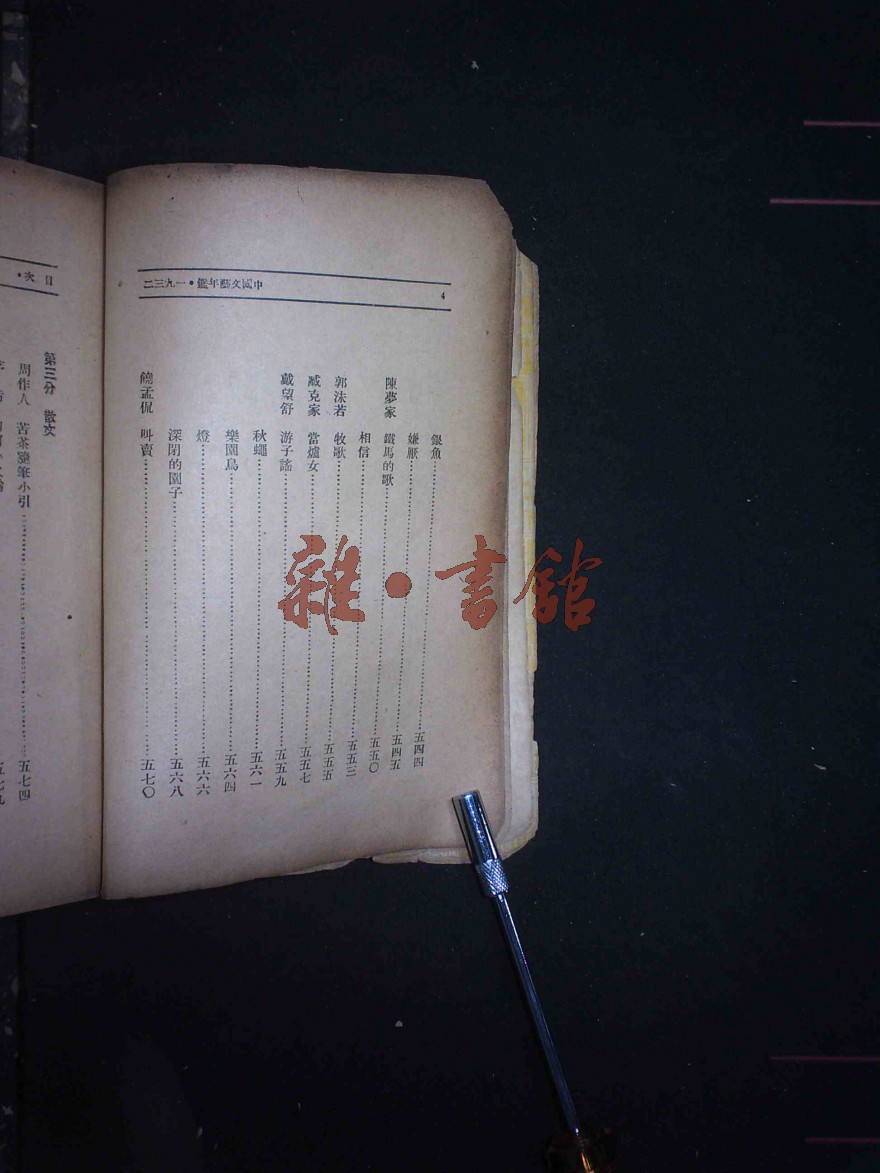 中國文藝年鑑•一九三二
4
銀魚……五四四
嫌厭……五四五
陳夢家 鐵馬的歌……五五〇
相信……五五三
郭沫若 牧歌……五五五
臧克家 當爐女……五五七
戴望舒 游子謠……五五九
秋蠅……五六一
樂園鳥……五六四
燈……五六六
深閉的園子……五六八
饒孟侃 叫賣……五七〇
目次•
第三分 散文
周作人 苦茶隨筆小引……五七四
雜•書館